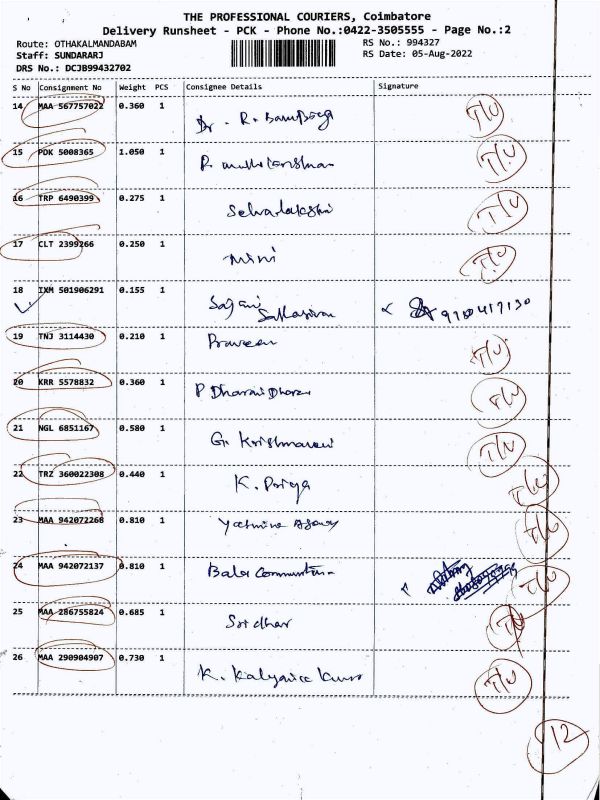 THE PROFESSIONAL COURIERS, Coimbatore
Delivery Runsheet - PCK - Phone No.:0422-3505555 - Page No.:2
Route: OTHAKALMANDABAM RS No.: 994327
Staff: SUNDARARJ RS Date: 05-Aug-2022
DRS No.: DCJB99432702
S No Consignment No Weight PCS Consignee Details Signature
14 MAA 567757022 0.360 1 Dr. R. T/U
15 PDK 5008365 1.050 1 R. T/U
16 TRP 6490399 0.275 1 Selvalakshmi T/U
17 CLT 2399266 0.250 1 Mini T/U
18 IXM 501906291 0.155 1 Sajani
19 TNJ 3114430 0.210 1 Praveen T/U
20 KRR 5578832 0.360 1 P Dharani Dharan T/U
21 NGL 6851167 0.580 1 G. Krishnaveni T/U
22 TRZ 360022308 0.440 1 K. Priya T/U
23 MAA 942072268 0.810 1 T/U
24 MAA 942072137 0.810 1 Bala T/U
25 MAA 286755824 0.685 1 Sridhar T/U
26 MAA 290904907 0.730 1 K. T/U
12